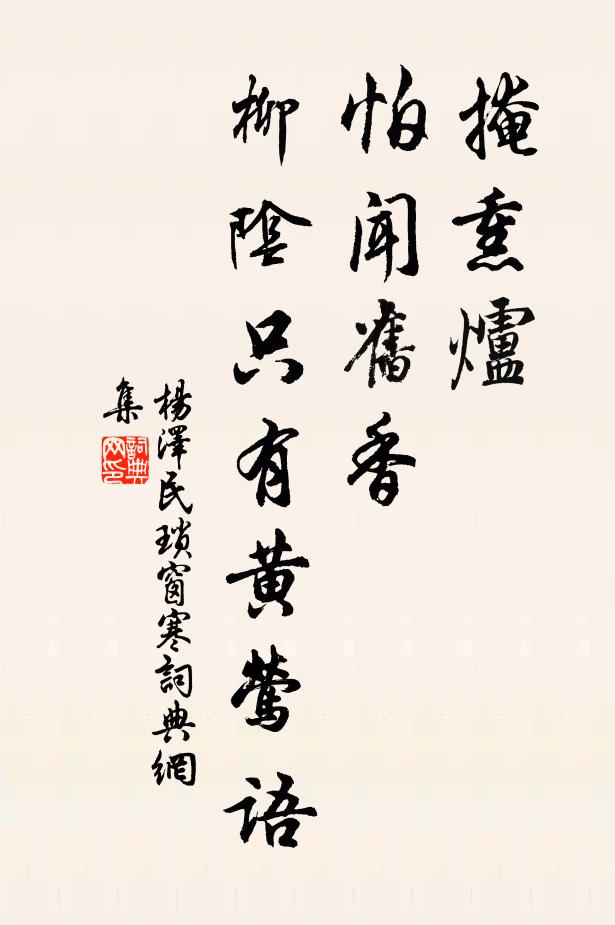 掩熏爐
怕聞舊香
柳陰只有黄鶯語
楊澤民瑣窗寒詞典網
集
詞典网印